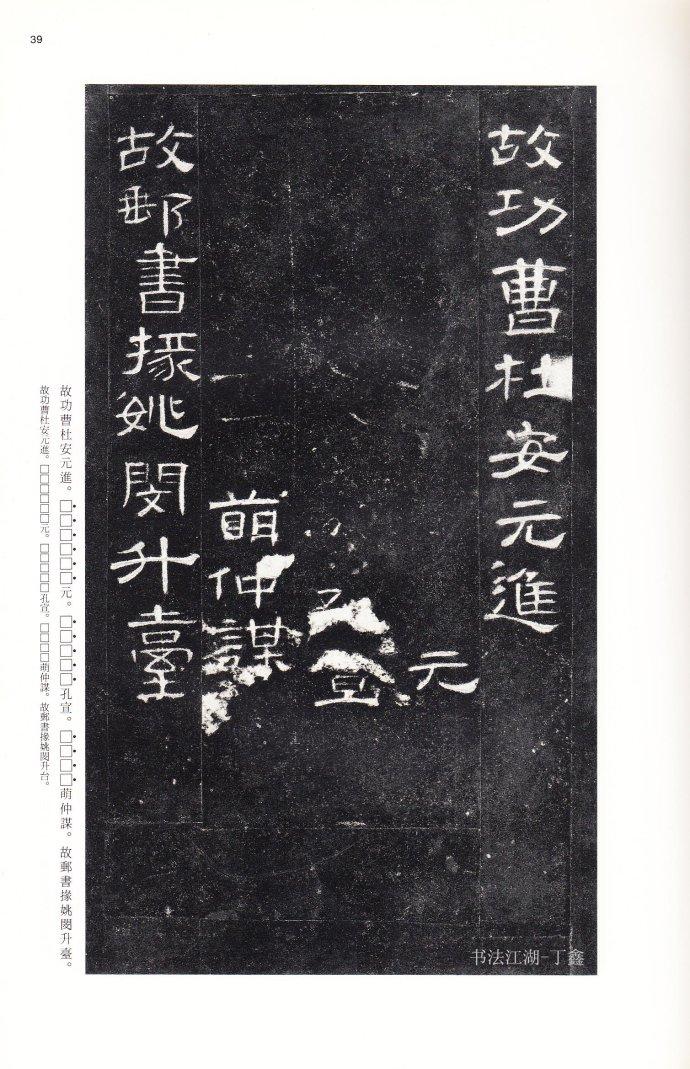 39
故功曹杜安元進
元
宣
萌仲謀
故郵書掾姚閔升臺
故功曹杜安元進。□□□□□□元。□□□□□孔宣。□□□□萌仲謀。故郵書掾姚閔升臺。
故功曹杜安元進。□□□□□□元。□□□□□孔宣。□□□□萌仲謀。故郵書掾姚閔升台。
书法江湖-丁鑫